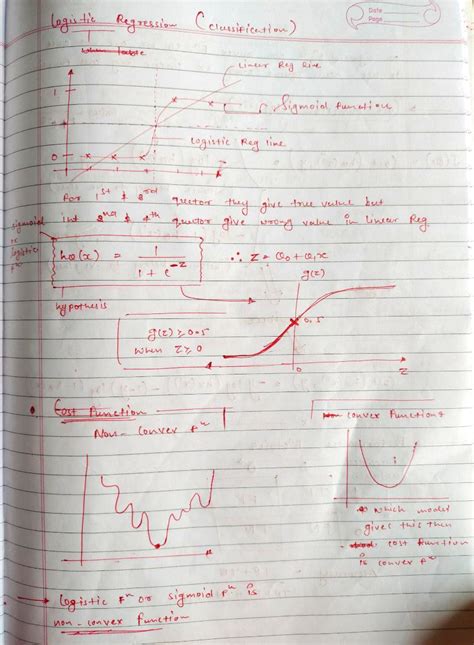 Logistic Regression (Classification)
Date
Page
Linear Reg line
1
Sigmoid function
0
Logistic Reg line
For 1st & 3rd quector they give true value but
int 2nd & 4th quector give wrong value in Linear Reg.
sigmoid
or
logistic
Fn
hθ(x) = 1 / 1 + e^-z ∴ z = θ0 + θ1x
g(z)
hypothesis
0.5
g(z) ≥ 0.5
when z ≥ 0
0
z
Cost Function
Non-convex Fn
convex Function
which model
gives this then
cost function
is convex Fn
Logistic Fn or sigmoid Fn is
non-convex function